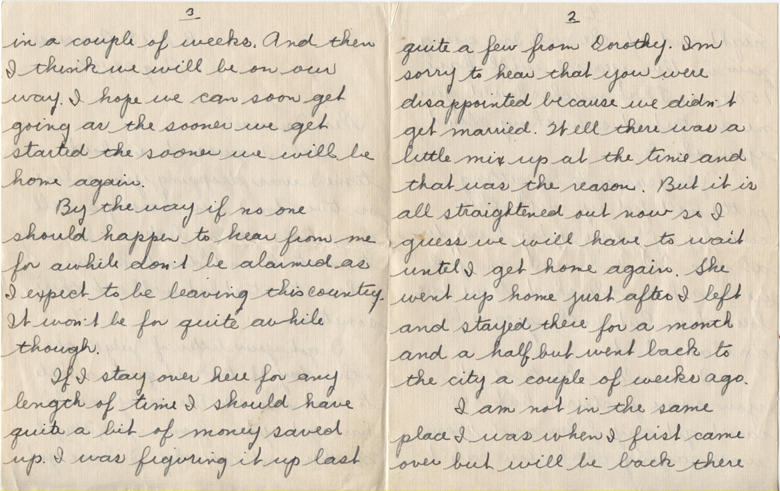 2
quite a few from Dorothy. Im
sorry to hear that you were
disappointed because we didn't
get married. Well there was a
little mix up at the time and
that was the reason. But it is
all straightened out now so I
guess we will have to wait
until I get home again. She
went up home just after I left
and stayed there for a month
and a half but went back to
the city a couple of weeks ago.
I am not in the same
place I was when I first came
over but will be back there
3
in a couple of weeks. And then
I think we will be on our
way. I hope we can soon get
going as the sooner we get
started the sooner we will be
home again.
By the way if no one
should happen to hear from me
for awhile don't be alarmed as
I expect to be leaving this country.
It won't be for quite awhile
though.
If I stay over here for any
length of time I should have
quite a bit of money saved
up. I was figuring it up last